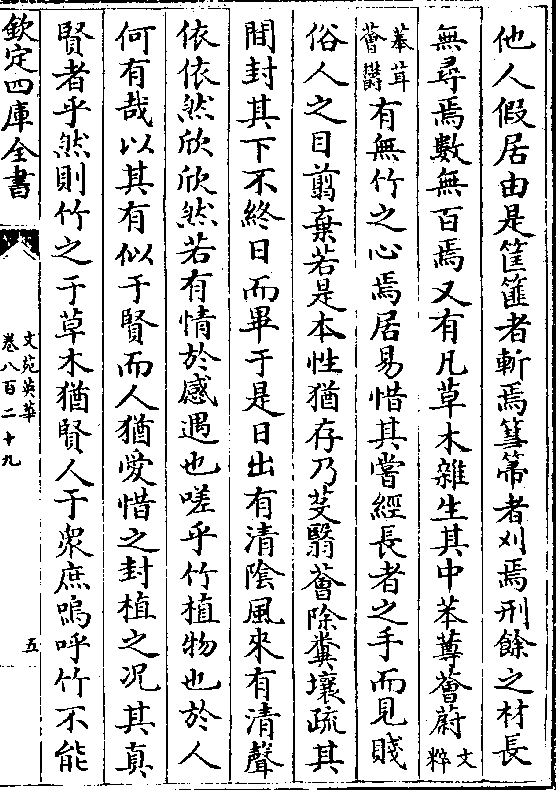 他人假居由是筐篚者斬焉篲箒者刈焉刑餘之材長
無尋焉數無百焉又有凡草木雜生其中苯䔿薈蔚文粹
菶茸薈鬱有無竹之心焉居易惜其嘗經長者之手而見賤
俗人之目翦棄若是本性猶存乃芟翳薈除糞壤疏其
間封其下不終日而畢于是日出有清陰風來有清聲
依依然欣欣然若有情於感遇也嗟乎竹植物也於人
何有哉以其有似于賢而人猶愛惜之封植之况其真
賢者乎然則竹之于草木猶賢人于衆庶嗚呼竹不能
欽定四庫全書
文苑英華
卷八百二十九
五